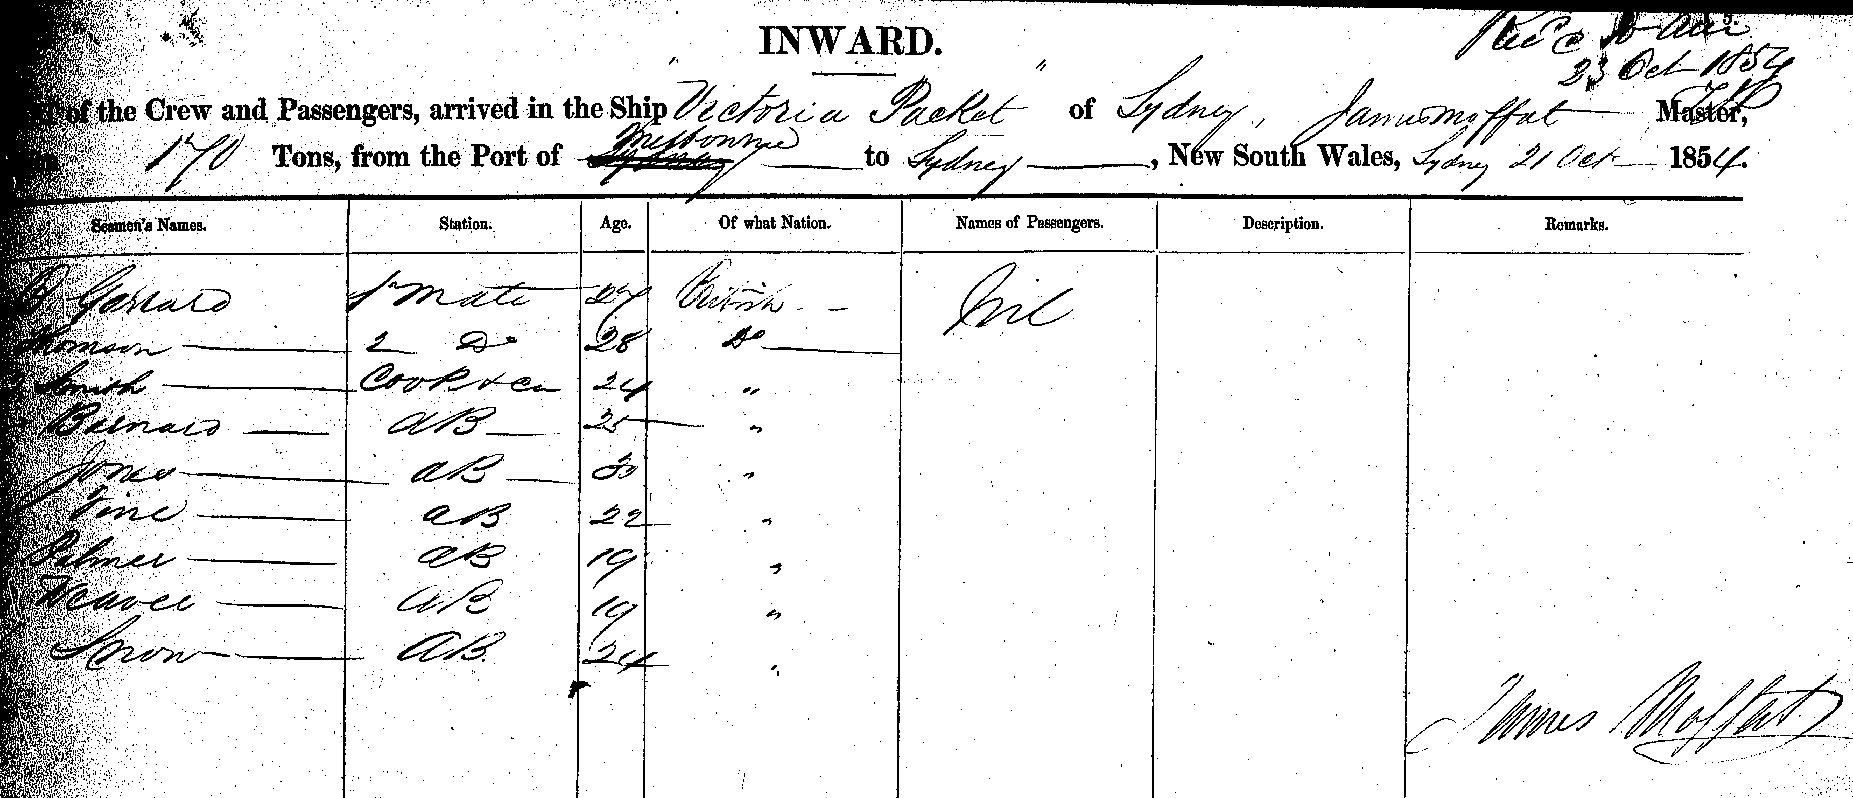 INWARD.
23 Oct 1854
of the Crew and Passengers, arrived in the Ship "Victoria Packet" of Sydney, James Moffat Master,
170 Tons, from the Port of Melbourne to Sydney, New South Wales, Sydney 21 Oct 1854.
Seamen's Names. Station. Age. Of what Nation. Names of Passengers. Description. Remarks.
Garrard 1 Mate 27 British Nil
2 Do 28 Do
Smith Cook & 24 "
Barnard AB 25 "
Jones AB 30 "
Vine AB 22 "
Palmer AB 19 "
AB 19 "
Snow AB 24 "
James Moffat